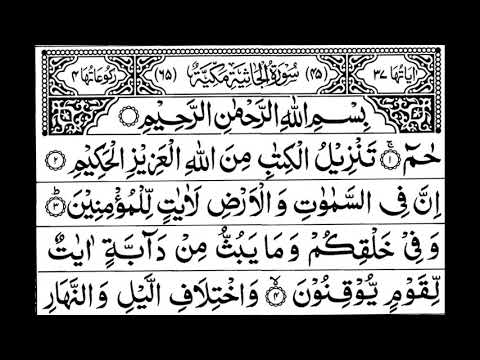 اٰیَاتُهَا ۳۷ (۴۵) سُوْرَةُ الْجَاثِیَةِ مَكِّیَّةٌ (۶۵) رُكُوْعَاتُهَا ۴
بِسْمِ اللّٰهِ الرَّحْمٰنِ الرَّحِیْمِ
حٰمٓ ۚ‏﴿۱﴾ تَنْزِیْلُ الْكِتٰبِ مِنَ اللّٰهِ الْعَزِیْزِ الْحَكِیْمِ ﴿۲﴾
اِنَّ فِی السَّمٰوٰتِ وَ الْاَرْضِ لَاٰیٰتٍ لِّلْمُؤْمِنِیْنَ ؕ﴿۳﴾
وَ فِیْ خَلْقِكُمْ وَ مَا یَبُثُّ مِنْ دَآبَّةٍ اٰیٰتٌ
لِّقَوْمٍ یُّوْقِنُوْنَ ۙ﴿۴﴾ وَ اخْتِلَافِ الَّیْلِ وَ النَّهَارِ